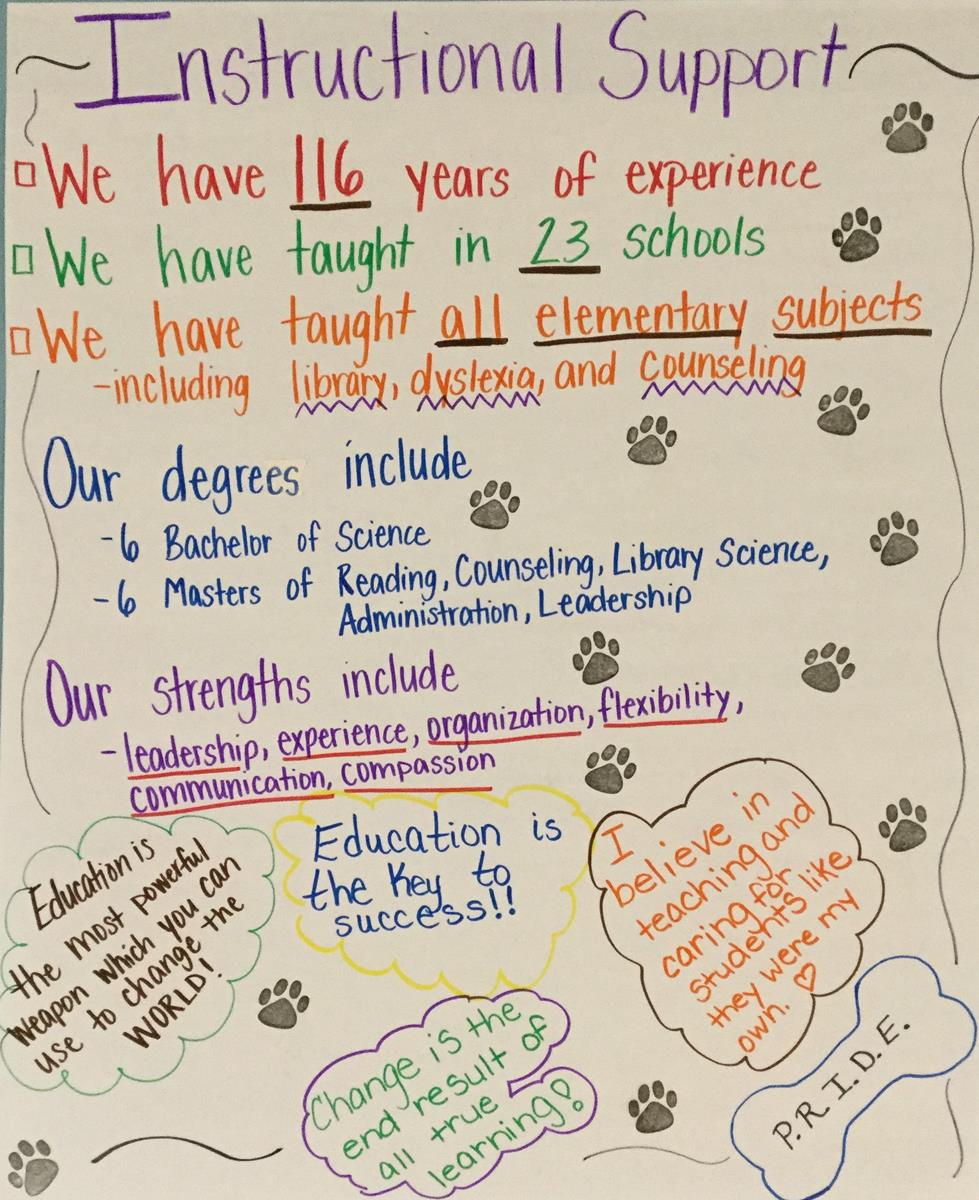 Instructional Support
We have 116 years of experience
We have taught in 23 schools
We have taught all elementary subjects
-including library, dyslexia, and counseling
Our degrees include
-6 Bachelor of Science
-6 Masters of Reading, Counseling, Library Science,
Administration, Leadership
Our strengths include
-leadership, experience, organization, flexibility,
communication, compassion
Education is
the most powerful
weapon which you can
use to change the
WORLD!
Education is
the key to
success!!
I
believe in
teaching and
caring for
students like
they were my
own. ♡
Change is the
end result of
all true
learning!
P.R.I.D.E.